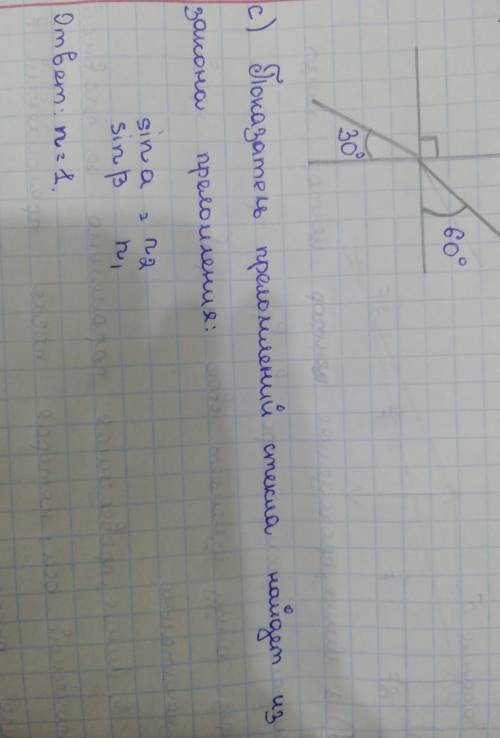 60°
30°
c) Показатель преломлений стекла найдет из
закона преломления:
sin a = n2
sin β n1
Ответ: n = 1.